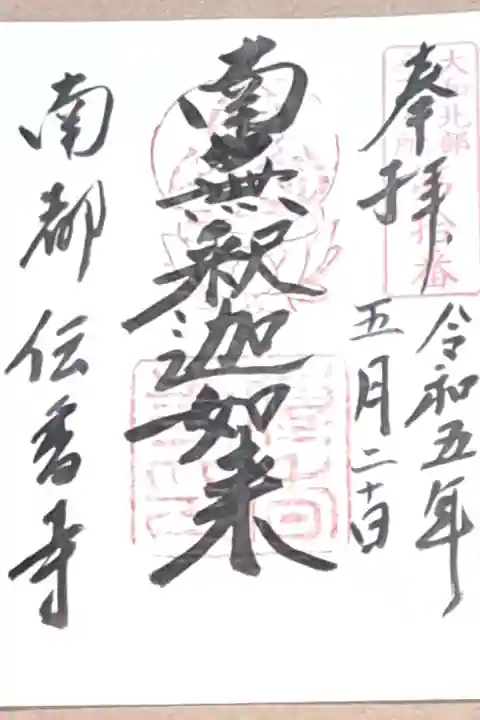 奉拝
令和五年
五月二十日
南無釈迦如来
南都 伝香寺